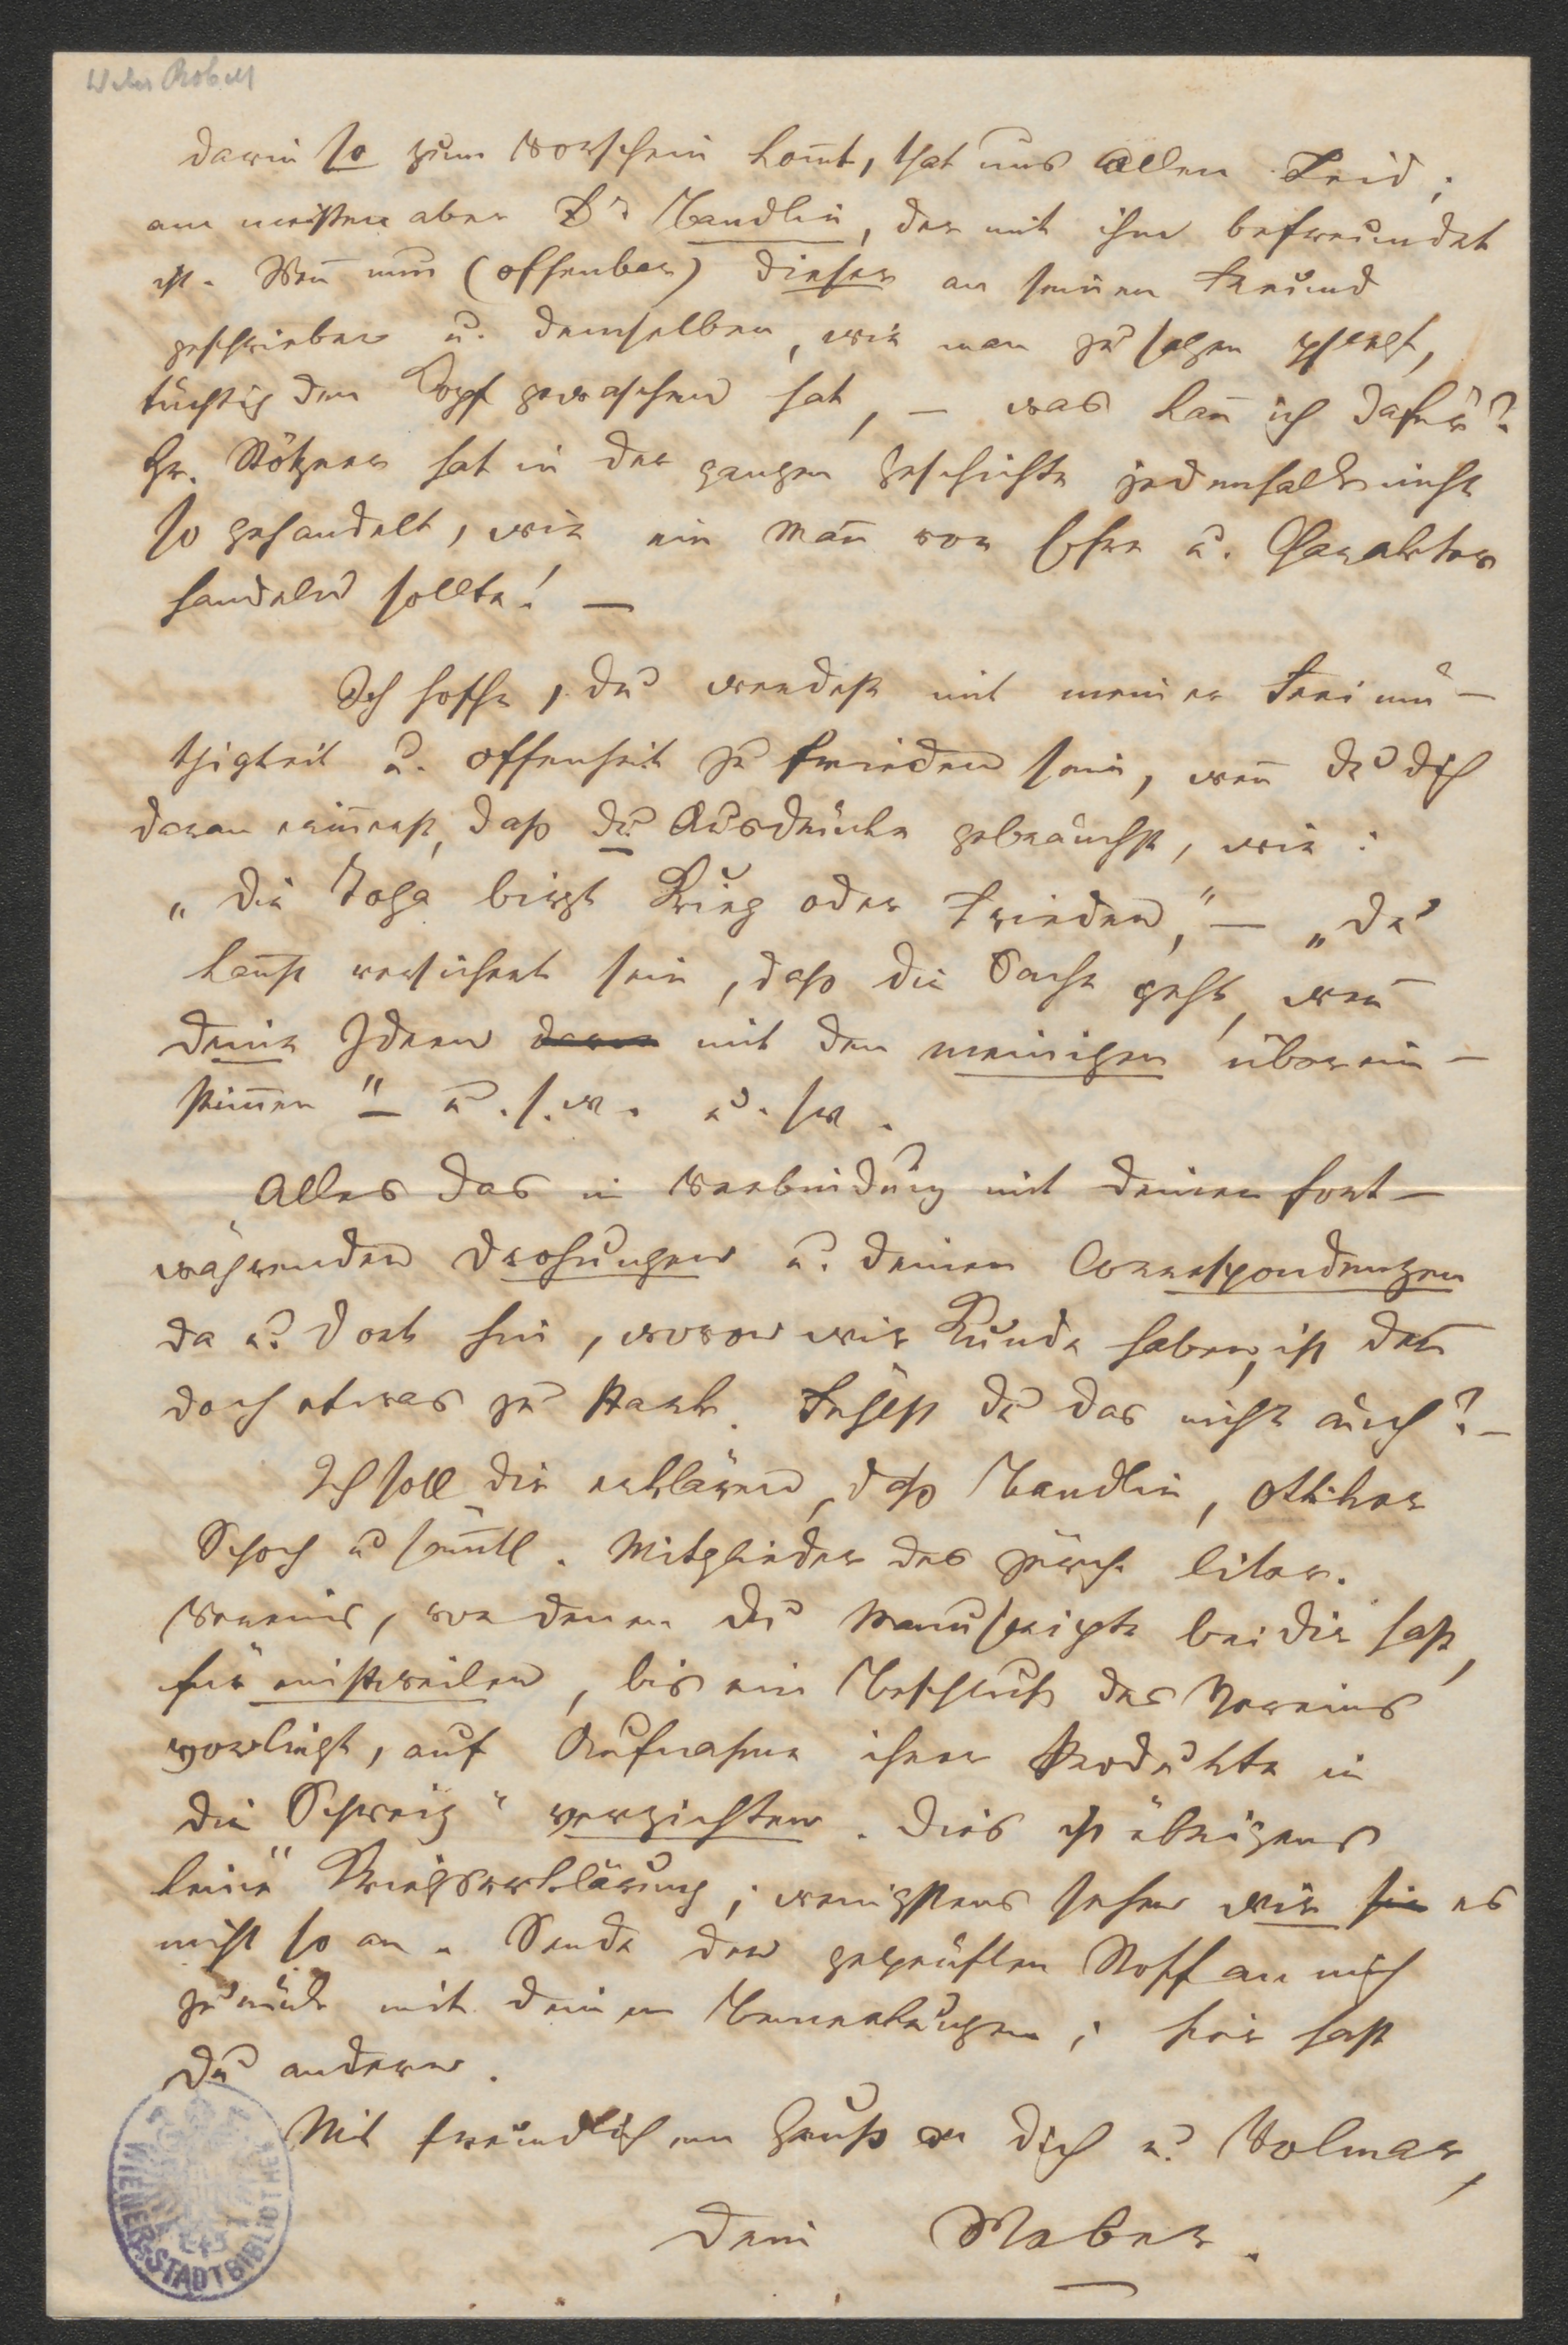 Weber Robert
darin so zum Vorschein kom̄t, that uns allen Leid;
am meisten aber Dr Bandlin, der mit ihm befreundet
ist. Wen̄ nun (offenbar) dieser an seinen Freund
geschrieben u. demselben, wie man zu sagen pflegt,
tüchtig den Kopf gewaschen hat, – was kan̄ ich dafür?
Hr. Stötzner hat in der ganzen Geschichte jedenfalls nicht
so gehandelt, wie ein Man̄ von Ehre u. Charakter
handeln sollte! –
Ich hoffe, du werdest mit meiner Freimü-
thigkeit u. Offenheit zu frieden sein, wen̄ du dich
daran erin̄erst, daß du Ausdrücke gebrauchst, wie:
„Die Toga birgt Krieg oder Frieden," – „Du
kan̄st versichert sein, daß die Sache geht, wen̄
deine Ideen mit den meinigen überein-
stim̄en" – u. s. w. u. sw.
Alles das in Verbindung mit deinen fort-
währenden Drohungen u. deinen Correspondenzen
da u. dort hin, wovon wir Kunde haben, ist den̄
doch etwas zu stark. Fühlst du das nicht auch? –
Ich soll dir erklären, daß Bandlin, Ottiker
Schoch u säm̄tl. Mitglieder des zürch. liter.
Vereins, von denen du Manuskripte bei dir hast,
für einstweilen, bis ein Beschluß des Vereins
vorliegt, auf Aufnahme ihrer Produkte in
die „Schweiz" verzichten. Dies ist übrigens
keine „Kriegserklärung"; wenigstens sehen wir sie es
nicht so an. Sende den geprüften Stoff an mich
zurück mit deinen Bemerkungen; hier hast
du andern.
Mit freundlichem Gruß an dich u. Volmar,
dein Weber.
WIENER STADTBIBLIOTHEK